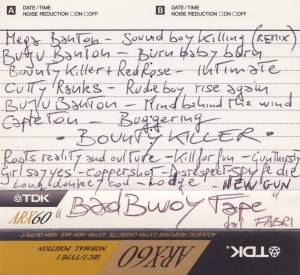 A DATE/TIME
NOISE REDUCTION □ON □OFF
B DATE/TIME
NOISE REDUCTION □ON □OFF
Mega Banton - Sound boy Killing (REMIX)
Buju Banton - Burn baby born
Bounty Killer + Redrose - intimate
Cutty Ranks - Rude boy rise again
Buju Banton - Mind behind the wind
Capleton - Buggering
- BOUNTY KILLER -
Roots reality and culture - Kill for fun - Gunthirsty
Girl say yes - coppershot - Disrespect spy fe die
Long donkey cod - Lodge - NEW GUN
TDK
AR-X60
"BadBwoy Tape"
dal FABRI
ACOUSTIC RESPONSE EXTRA CASSETTE EXTRA HIGH MAX OUTPUT
IECI/TYPE I
NORMAL POSITION
AR-X60
TDK